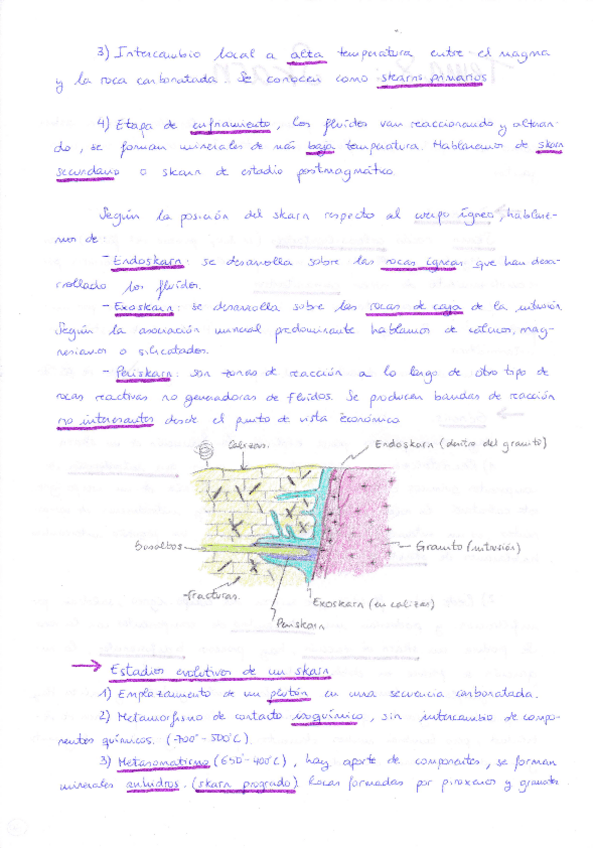 3) Intercambio local a alta temperatura entre el magma
y la roca carbonatada. Se conocen como skarns primarios
4) Etapa de enfriamiento, los fluidos van reaccionando y alteran-
do, se forman minerales de más baja temperatura. Hablaremos de skarn
secundario o skarn de estadio postmagmático.
Según la posición del skarn respecto al cuerpo ígneo, hablare-
mos de:
- Endoskarn: se desarrolla sobre las rocas ígneas que han desa-
rrollado los fluidos.
- Exoskarn: se desarrolla sobre las rocas de caja de la intrusión
Según la asociación mineral predominante hablamos de cálcicos, mag-
nesianos o silicatados.
- Periskarn: son zonas de reacción a lo largo de otro tipo de
rocas reactivas no generadoras de fluidos. Se producen bandas de reacción
no interesantes desde el punto de vista económico.
Calizas.
Endoskarn (dentro del granito)
Basaltos
Granito (intrusión)
fracturas.
Exoskarn (en calizas)
Periskarn
→ Estadios evolutivos de un skarn
1) Emplazamiento de un plutón en una secuencia carbonatada.
2) Metamorfismo de contacto isoquímico, sin intercambio de compo-
nentes químicos. (~700°-500°C)
3) Metasomatismo (650°-400°C), hay aporte de componentes, se forman
minerales anhidros. (skarn progrado). Rocas formadas por piroxenos y granates